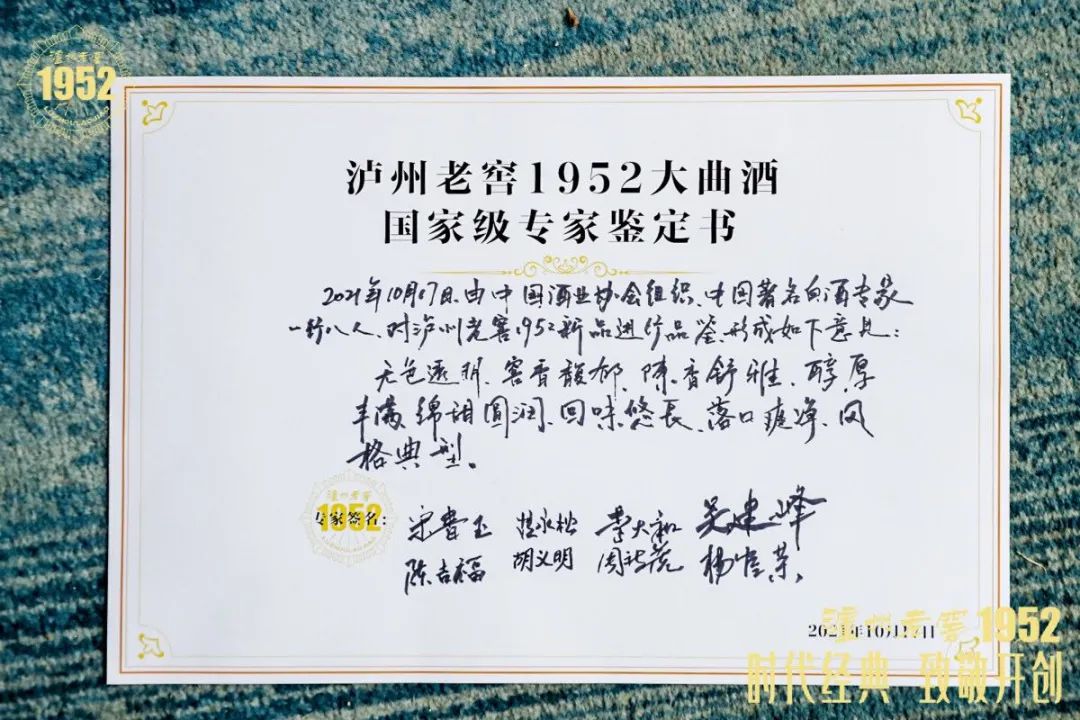 泸州老窖
1952
泸州老窖1952大曲酒
国家级专家鉴定书
2021年10月17日,由中国酒业协会组织、中国著名白酒专家
一行八人,对泸州老窖1952新品进行品鉴,形成如下意见:
无色透明、窖香馥郁、陈香舒雅、醇厚
丰满、绵甜圆润、回味悠长、落口爽净、风
格典型。
泸州老窖
1952
专家签名: 宋书玉 李大和 吴建峰
陈吉福 胡义明 杨官荣
2021年10月17日
泸州老窖1952
时代经典 致敬开创